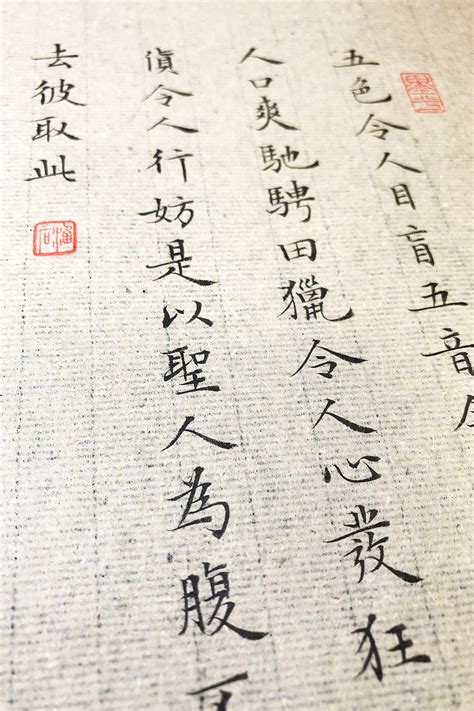 五色令人目盲五音
人口爽馳騁田獵令人心發狂
貨令人行妨是以聖人為腹
去彼取此